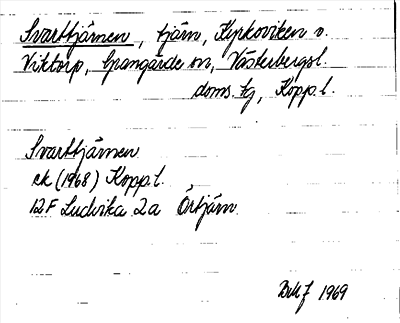 Svarttjärnen, tjärn, Kyrkoviken v.
Viktorp, Grangärde sn, Västerbergsl.
doms. tg, Kopp. l.
Svarttjärnen
ek (1968) Kopp. l.
12F Ludvika 2a Örtjärn
1969